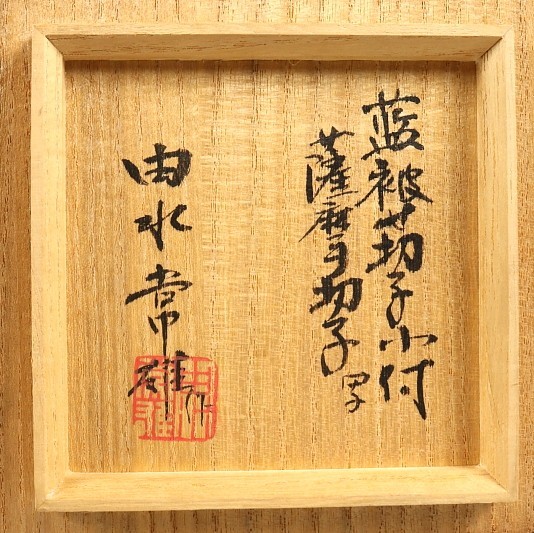 藍被せ切子小付
薩摩切子写
由水常雄作